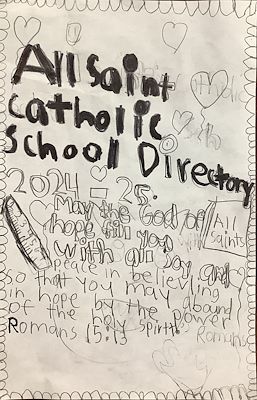 All Saint
Catholic
School Directory
2024-25.
May the God of
hope fill you
with all joy and
peace in believing
so that you may abound
in hope by the power
of the holy spirit
Romans 15:13 Romans
All
Saints